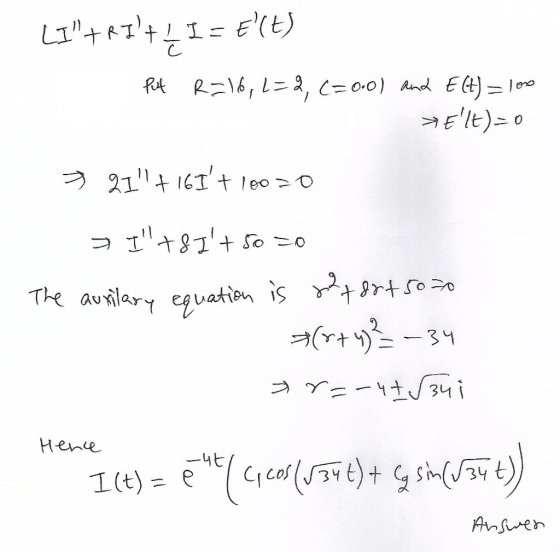 LI" + RI' + 1/C I = E'(t)
Put R=16, L=2, C=0.01 and E(t)=100
⇒ E'(t)=0
⇒ 2I" + 16I' + 100 = 0
⇒ I" + 8I' + 50 = 0
The auxilary equation is r² + 8r + 50 = 0
⇒ (r+4)² = -34
⇒ r = -4 ± √34 i
Hence
I(t) = e^-4t (C₁ cos(√34 t) + C₂ sin(√34 t))
Answer